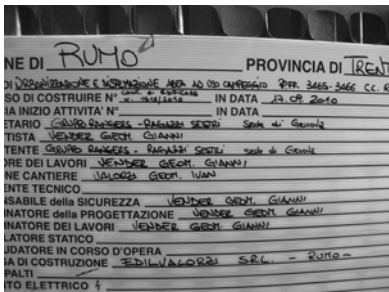 NE DI RUMO PROVINCIA DI TRENT
DI URBANIZZAZIONE E SISTEMAZIONE AREA AD USO CAMPEGGIO P.FF. 3465-3466 CC. R
SO DI COSTRUIRE N° IN DATA 17.09.2010
IA INIZIO ATTIVITA' N° IN DATA
ETARIO GRUPPO RANGERS - RAGAZZI SESTRI sede di Genova
TISTA VENDER GEOM. GIANNI
TENTE GRUPPO RANGERS - RAGAZZI SESTRI sede di Genova
ORE DEI LAVORI VENDER GEOM. GIANNI
ONE CANTIERE VALORZI GEOM. IVAN
ENTE TECNICO
NSABILE della SICUREZZA VENDER GEOM. GIANNI
INATORE della PROGETTAZIONE VENDER GEOM. GIANNI
INATORE DEI LAVORI VENDER GEOM. GIANNI
LATORE STATICO
UDATORE IN CORSO D'OPERA
SA DI COSTRUZIONE EDILVALORZI S.R.L. - RUMO -
PALTI
TO ELETTRICO